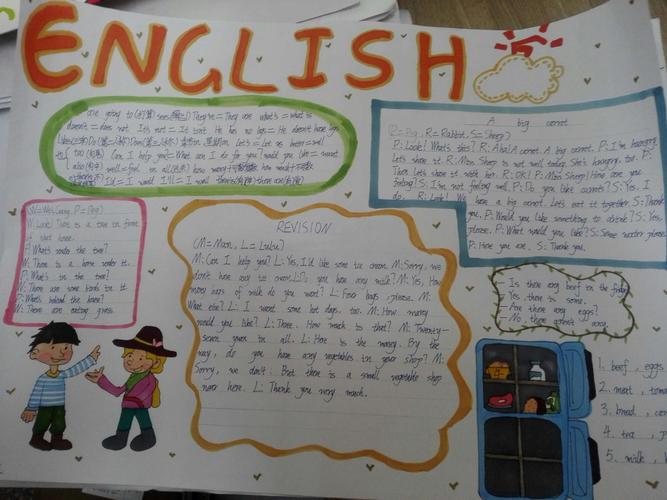 ENGLISH
They're = They are what's = what is
doesn't = does not. It's not = It isn't He has no legs = He doesn't have legs
Can I help you? = What can I do for you?
well = feel
I'd = I would I'll = I will
A big carrot
(P = Pig, R = Rabbit, S = Sheep)
P: Look! What's this? R: Aha! A carrot. A big carrot. P: I'm hungry.
Let's share it. R: Miss Sheep is not well today. She's hungry, too. P:
Then let's share it with her. R: OK! P: Miss Sheep! How are you
feeling? S: I'm not feeling well. P: Do you like carrots? S: Yes, I
do. R: Look! We have a big carrot. Let's eat it together. S: Thank
you. P: Would you like something to drink? S: Yes,
please. P: What would you like? S: Some water, please.
P: Here you are. S: Thank you.
P = Pig)
W: Look! There is a tree in front
of that house.
P: What's under the tree?
W: There is a horse under it.
P: What's in the tree?
W: There are some birds in it.
P: What's behind the house?
W: There are eating grass.
REVISION
(M = Man, L = Lulu)
M: Can I help you? L: Yes, I'd like some ice cream. M: Sorry, we
don't have ice cream. L: do you have any milk? M: Yes. How
many bags of milk do you want? L: Four bags, please. M:
What else? L: I want some hot dogs, too. M: How many
would you like? L: Three. How much is that? M: Twenty-
seven yuan in all. L: Here is the money. By the
way, do you have any vegetables in your shop? M:
Sorry, we don't. But there is a small vegetable shop
near here. L: Thank you very much.
- Is there any beef in the fridge?
- Yes there is some.
- Are there any eggs?
- No, there aren't any.
1. beef, eggs
2. meat,
3. bread,
4. tea,
5. milk,